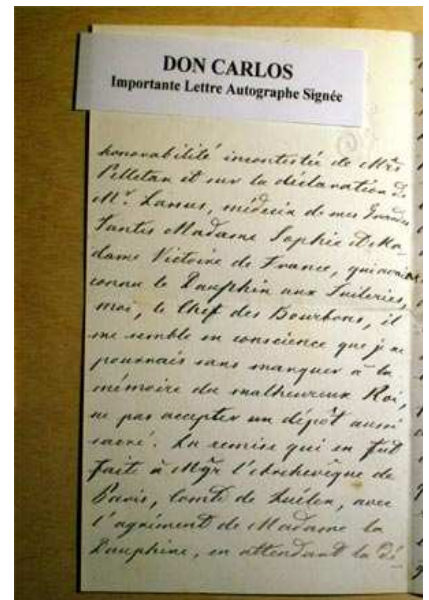 DON CARLOS
Importante Lettre Autographe Signée
honorabilité incontestée de Mrs
Pelletan et sur la déclaration de
Mr. Lassus, médecin de mes Grandes
Tantes Madame Sophie & Ma-
dame Victoire de France, qui avaient
connu le Dauphin aux Tuileries,
moi, le Chef des Bourbons, il
me semble en conscience que je ne
pourrais sans manquer à la
mémoire du malheureux Roi,
ne pas accepter un dépôt aussi
sacré. La remise qui en fut
faite à Mgr l'Archevêque de
Paris, Comte de Quélen, avec
l'agrément de Madame la
Dauphine, en attendant la dé